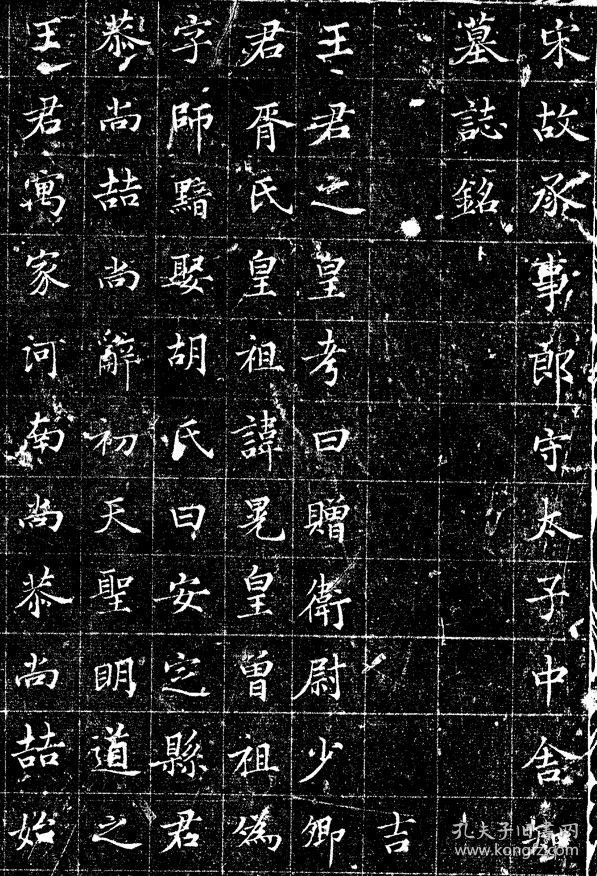 宋故承事郎守太子中舍
墓誌銘
吉
王君之皇考曰贈衛尉少卿
君胥氏皇祖諱晃皇曾祖偽
字師黯娶胡氏曰安定縣君
恭尚喆尚辭初天聖明道之
王君寓家河南尚恭尚喆始
孔夫子旧书网
www.kongfz.com